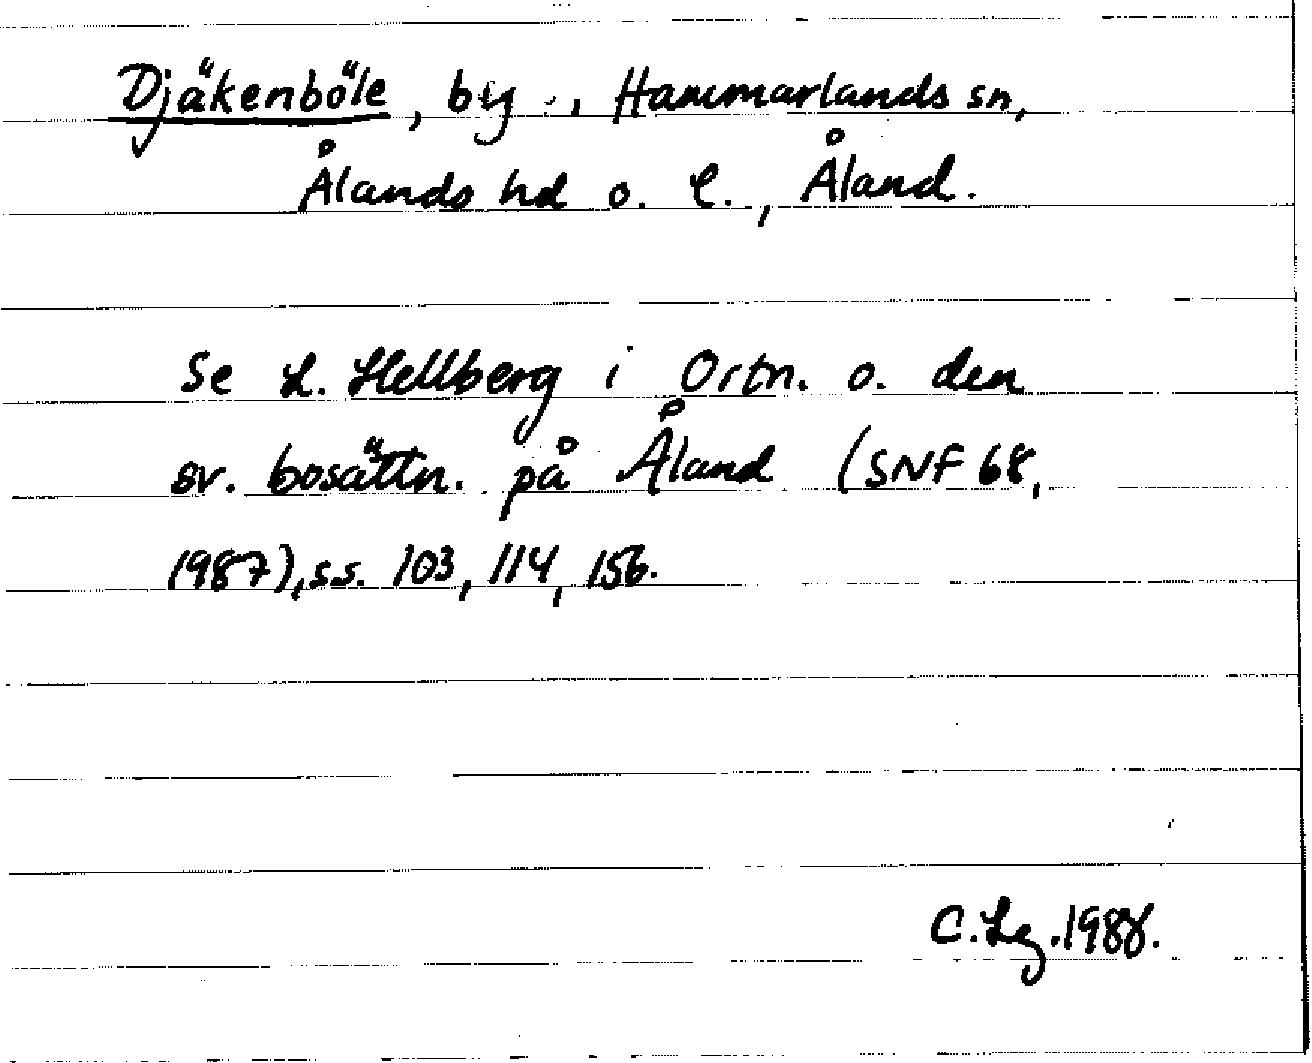 Djäkenböle, by, Hammarlands sn,
Ålands hd o. l., Åland.
Se L. Hellberg i Ortn. o. den
sv. bosättn. på Åland (SNF 68,
1987), ss. 103, 114, 156.
C. Lg. 1988.